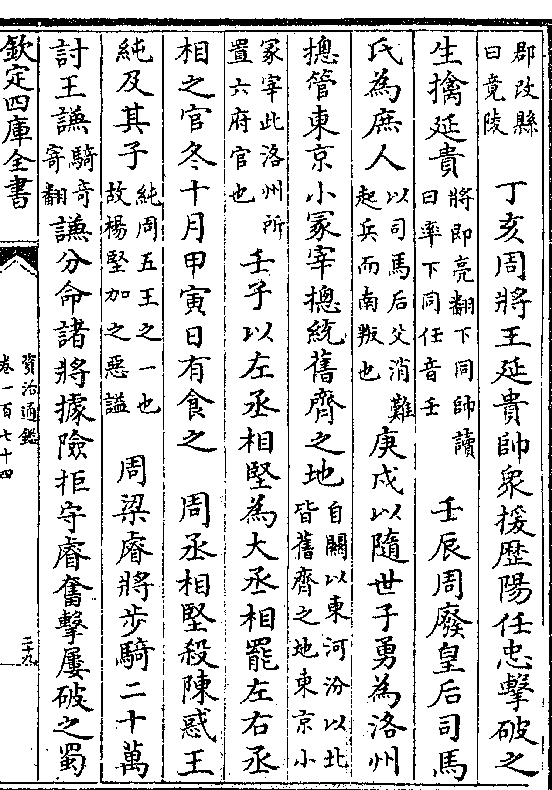 郡改縣曰竟陵 丁亥周將王延貴帥衆援歴陽任忠擊破之
生擒延貴將即亮翻下同帥讀曰率下同任音壬 壬辰周廢皇后司馬
氏為庶人以司馬后父消難起兵而南叛也 庚戌以隨世子勇為洛州
摠管東京小冢宰摠統舊齊之地自關以東河汾以北皆舊齊之地東京小
冢宰此洛州所置六府官也 壬子以左丞相堅為大丞相罷左右丞
相之官冬十月甲寅日有食之 周丞相堅殺陳惑王
純及其子純周五王之一也故楊堅加之惡諡 周梁睿將步騎二十萬
討王謙騎奇寄翻謙分命諸將據險拒守睿奮擊屢破之蜀
欽定四庫全書
資治通鑑
卷一百七十四